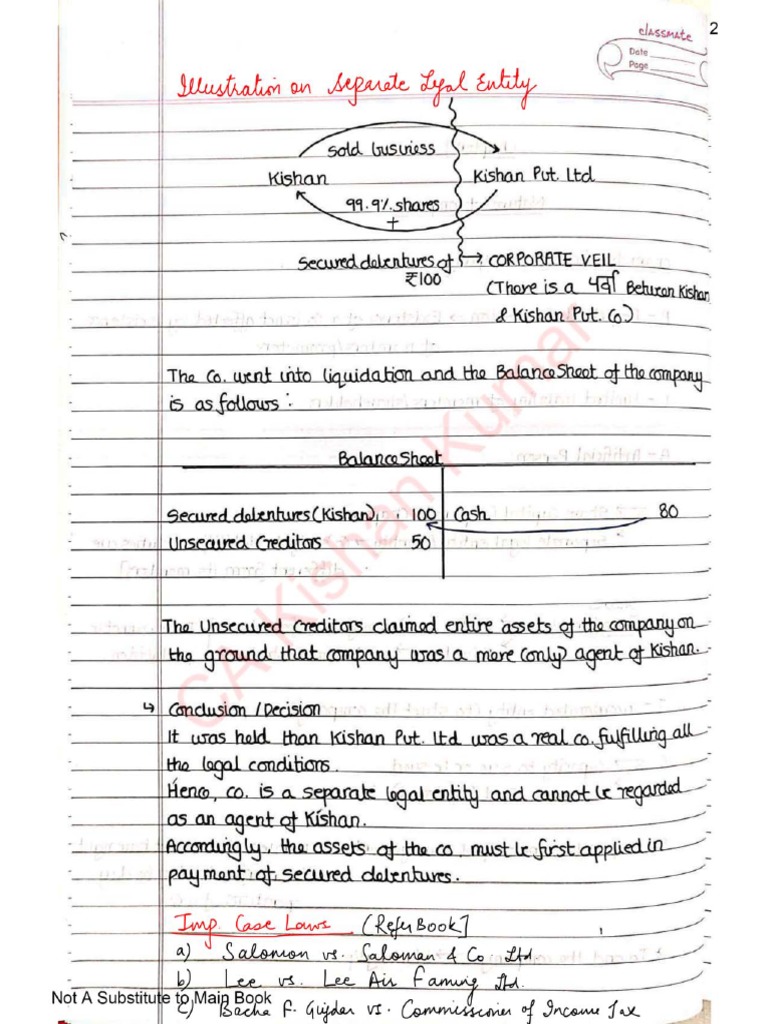 2
classmate
Date
Page
Illustration on Separate Legal Entity
Sold business
Kishan
Kishan Pvt. Ltd
99.9% shares
+
Secured debentures of → CORPORATE VEIL
₹100
(There is a पर्दा Between Kishan
& Kishan Pvt. Co)
The Co. went into liquidation and the Balance Sheet of the company
is as follows :
Balance Sheet
Secured debentures (Kishan) 100 Cash 80
Unsecured Creditors 50
The Unsecured Creditors claimed entire assets of the company on
the ground that company was a mere (only) agent of Kishan.
↳ Conclusion / Decision
It was held than Kishan Pvt. Ltd was a real co. fulfilling all
the legal conditions.
Hence, co. is a separate legal entity and cannot be regarded
as an agent of Kishan.
Accordingly, the assets of the co. must be first applied in
payment of secured debentures.
Imp. Case Laws [Refer Book]
a) Salomon vs. Saloman & Co Ltd.
b) Lee vs. Lee Air Faming Ltd.
c) Bacha F. Gujdar vs. Commissioner of Income Tax
Not A Substitute to Main Book
CA Kishan Kumar